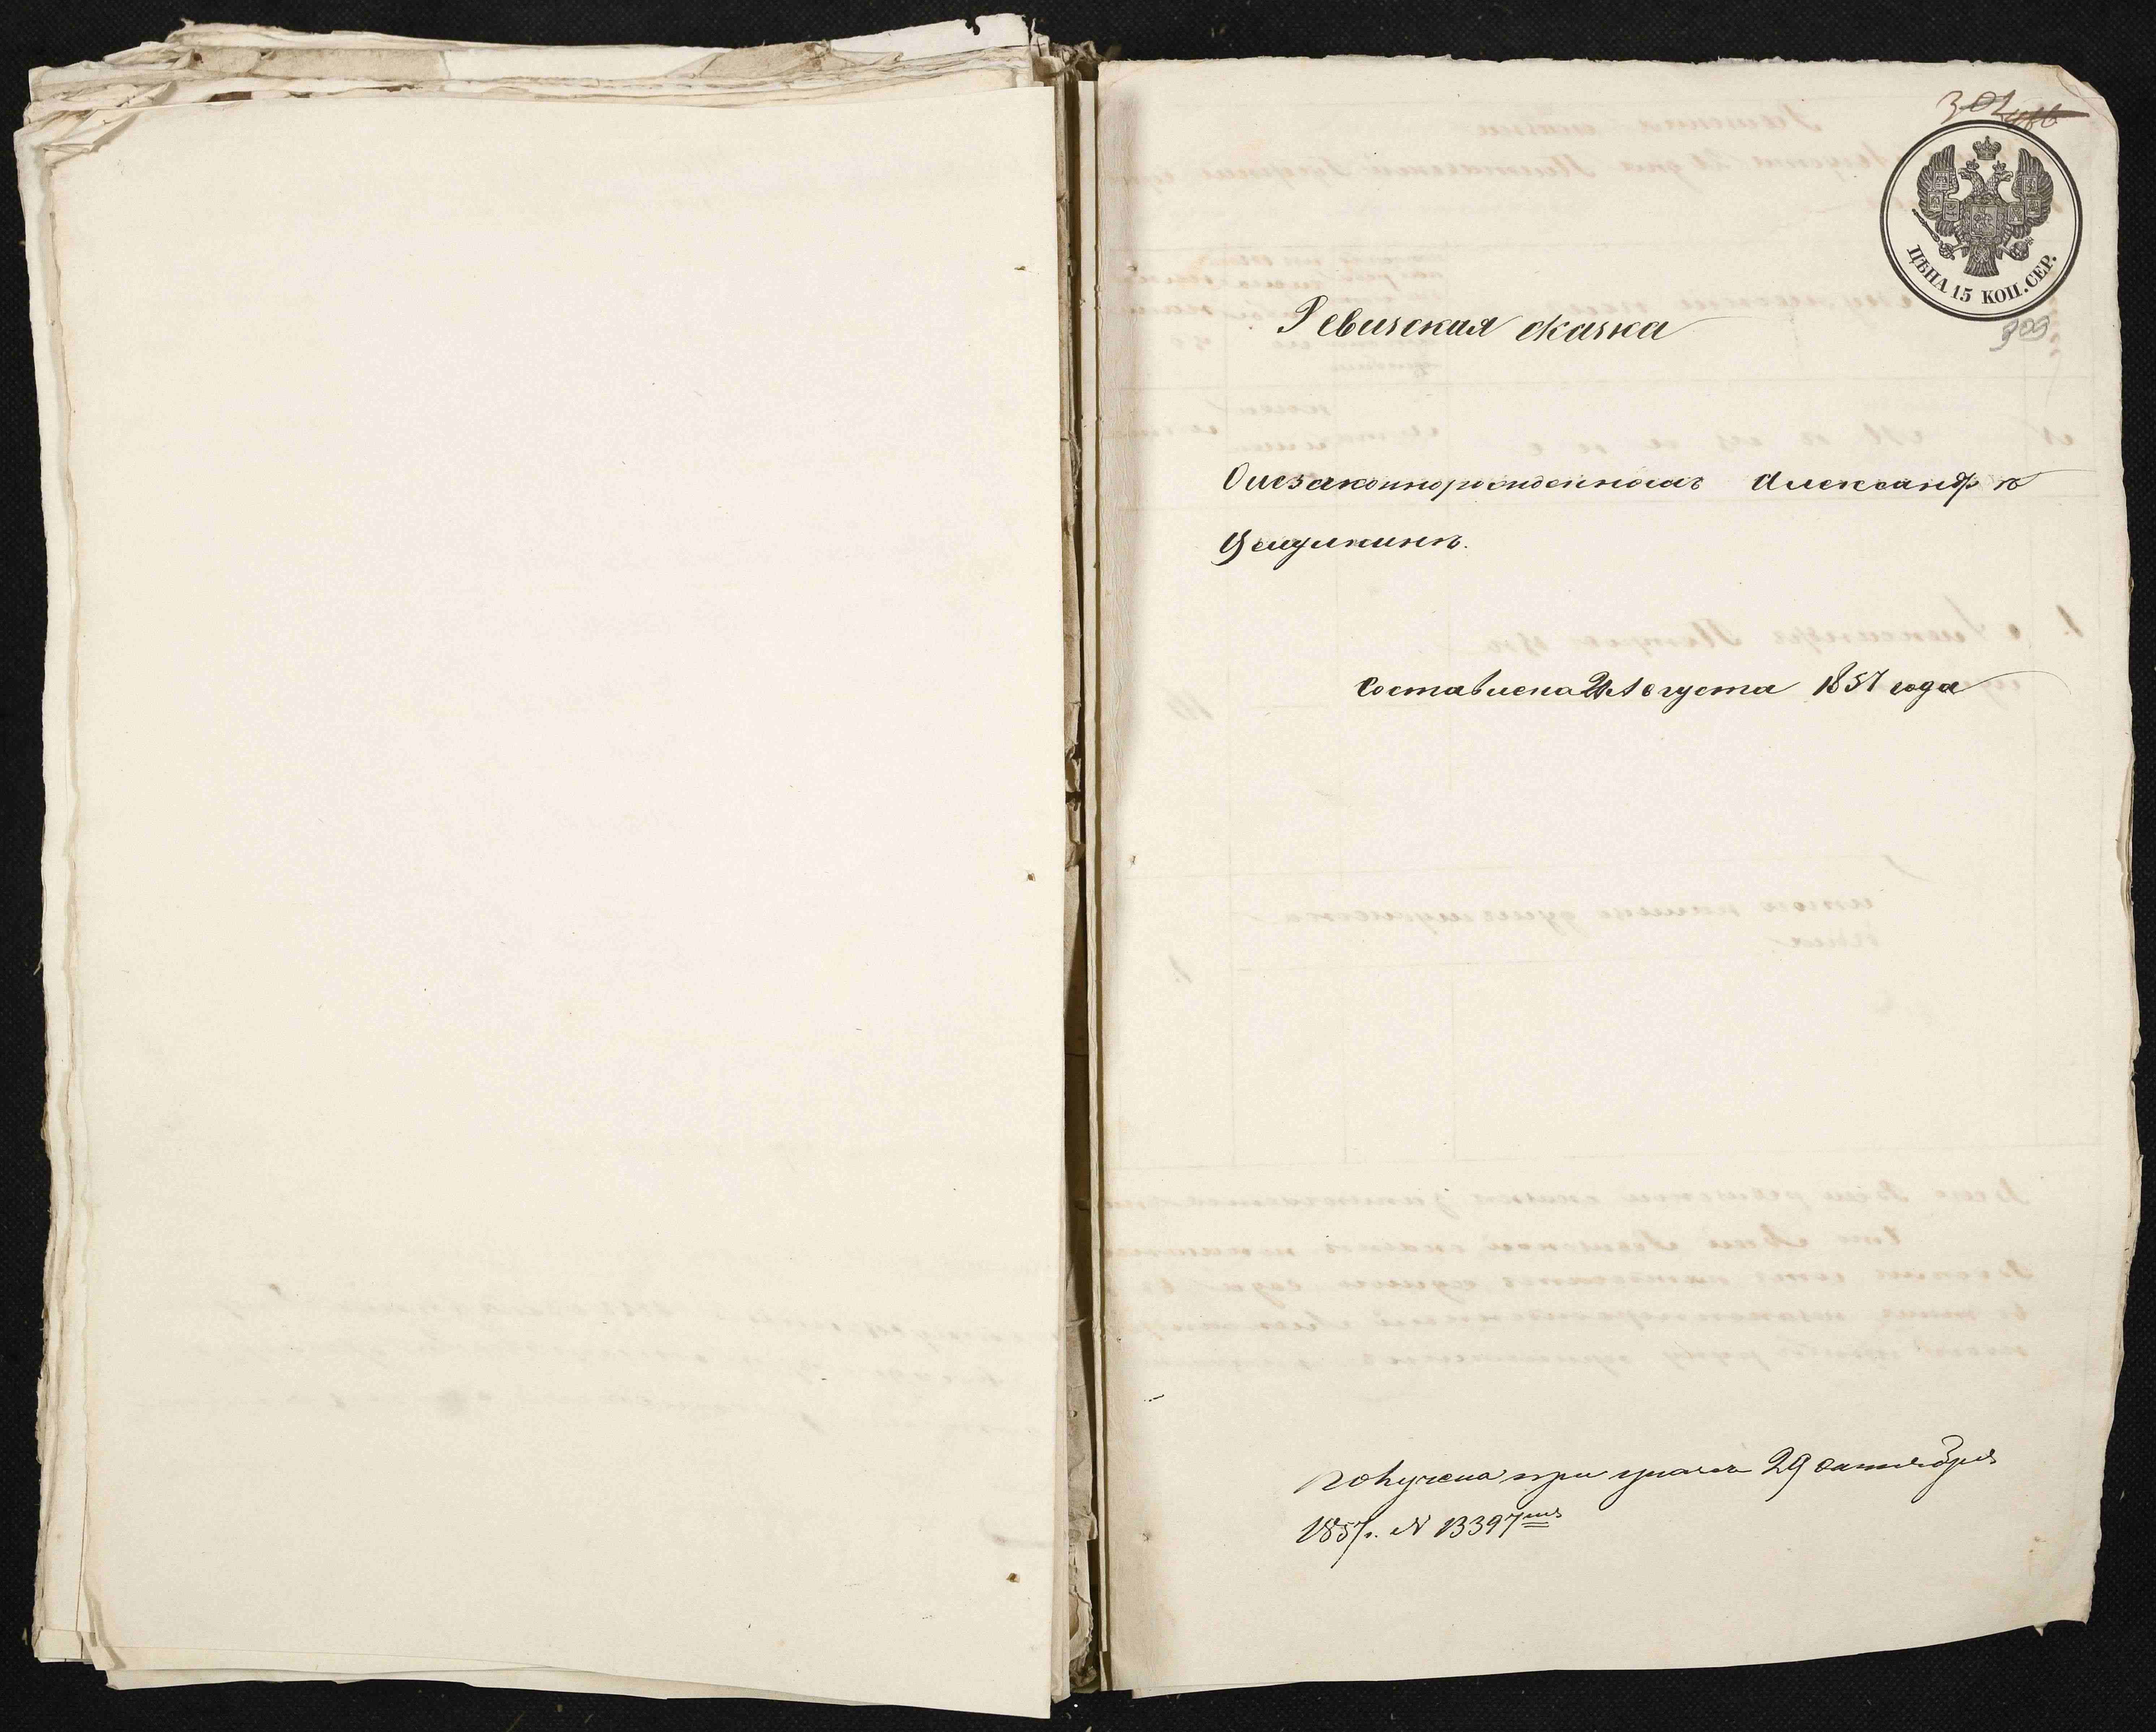 302
ЦѢНА 15 КОП. СЕР.
303
Ревизская сказка
О незаконнорожденномъ Александрѣ
Составлена 21 Августа 1857 года
получена при указѣ 29 октября
1857 г. № 13397